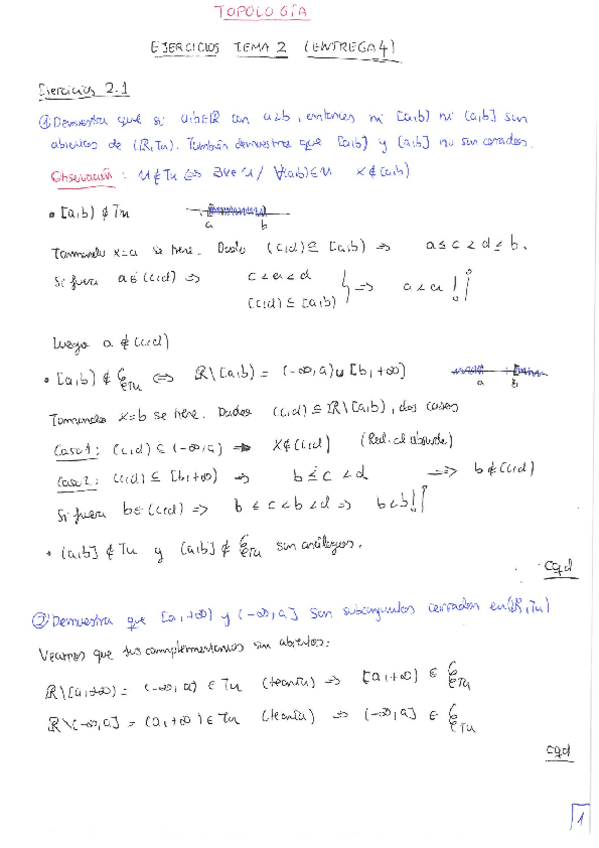 TOPOLOGÍA
EJERCICIOS TEMA 2 (ENTREGA 4)
Ejercicios 2.1
① Demuestra que si a,b∈ℝ con a<b, entonces ni [a,b) ni (a,b] son
abiertos de (ℝ,Tu). También demuestra que [a,b) y (a,b] no son cerrados.
Observación: U∉Tu ⇔ ∃x∈U / ∀(a,b)⊆U x∉(a,b)
• [a,b) ∉ Tu
a b
Tomando x=a se tiene. Dado (c,d) ⊆ [a,b) ⇒ a≤c<d≤b.
Si fuera a∈(c,d) ⇒ c<a<d
(c,d) ⊆ [a,b) ⇒ a<a !!
Luego a ∉ (c,d)
• [a,b) ∉ C_Tu ⇔ ℝ\[a,b) = (-∞,a)∪[b,+∞)
a b
Tomando x=b se tiene. Dados (c,d) ⊆ ℝ\[a,b), dos casos
Caso 1: (c,d) ⊆ (-∞,a) ⇒ x∉(c,d) (Red. al absurdo)
Caso 2: (c,d) ⊆ [b,+∞) ⇒ b≤c<d ⇒ b∉(c,d)
Si fuera b∈(c,d) ⇒ b≤c<b<d ⇒ b<b!!
• (a,b] ∉ Tu y (a,b] ∉ C_Tu son análogos.
cqd
② Demuestra que [a,+∞) y (-∞,a] son subconjuntos cerrados en (ℝ,Tu)
Veamos que sus complementarios son abiertos:
ℝ\[a,+∞) = (-∞,a) ∈ Tu (teoría) ⇒ [a,+∞) ∈ C_Tu
ℝ\(-∞,a] = (a,+∞) ∈ Tu (teoría) ⇒ (-∞,a] ∈ C_Tu
cqd
1